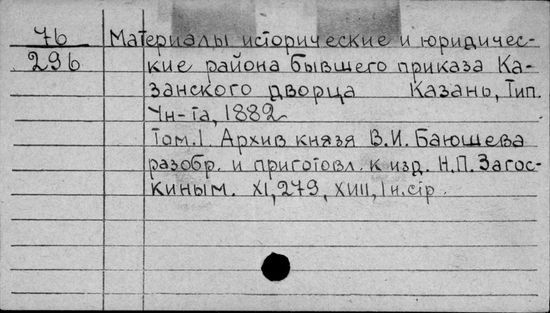 76 Материалы исторические и юридичес-
296 кие района бывшего приказа Ка-
занского дворца Казань, Тип.
Ун-та, 1882
Том. I. Архив князя В.И. Баюшева
разобр. и приготовл. к изд. Н.П. Загос-
киным. XI, 279, XVIII, I н. стр.